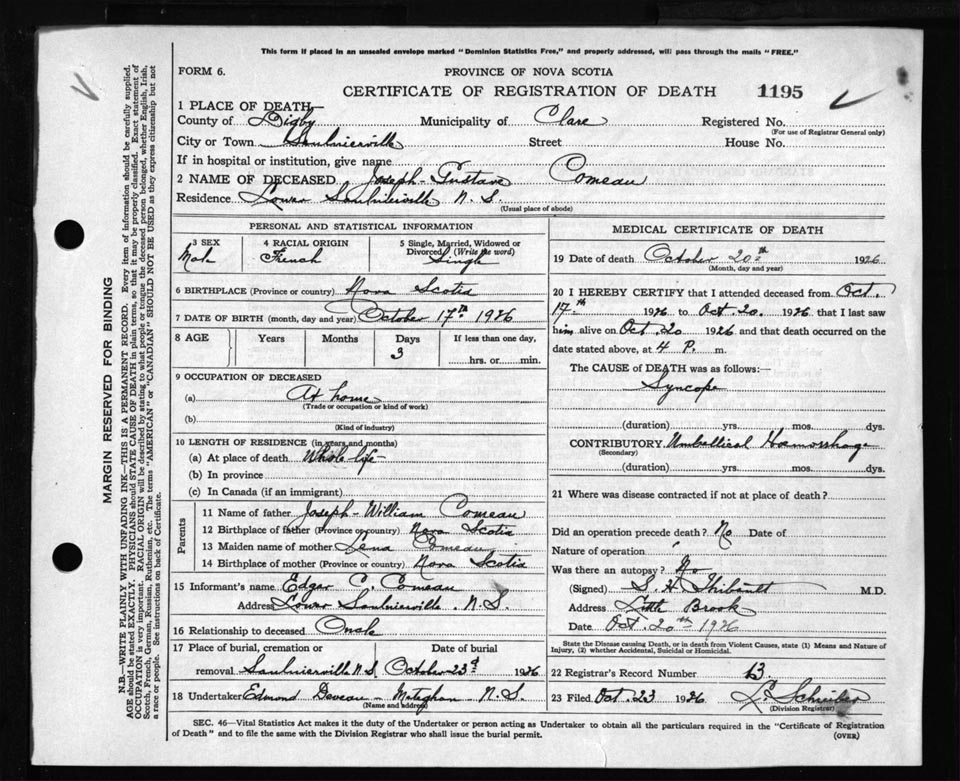 This form if placed in an unsealed envelope marked "Dominion Statistics Free," and property addressed, will pass through the mails "FREE."
FORM 6.
PROVINCE OF NOVA SCOTIA
CERTIFICATE OF REGISTRATION OF DEATH 1195
1 PLACE OF DEATH—
County of Digby Municipality of Clare Registered No.
(For use of Registrar General only)
City or Town Saulnierville Street House No.
If in hospital or institution, give name
2 NAME OF DECEASED Joseph-Gustave Comeau
Residence Lower Saulnierville N. S.
(Usual place of abode)
MARGIN RESERVED FOR BINDING
N.B.—WRITE PLAINLY WITH UNFADING INK—THIS IS A PERMANENT RECORD. Every item of information should be carefully supplied.
AGE should be stated EXACTLY. PHYSICIANS should STATE CAUSE OF DEATH in plain terms, so that it may be properly classified. Exact statement of
OCCUPATION is very important. RACIAL ORIGIN will be described by stating to what people or tongue the deceased person belonged, whether English, Irish,
Scotch, French, German, Russian, Ruthenian, etc. The terms "AMERICAN" or "CANADIAN" SHOULD NOT BE USED as they express citizenship but not
a race or people. See instructions on back of Certificate.
PERSONAL AND STATISTICAL INFORMATION
3 SEX
Male
4 RACIAL ORIGIN
French
5 Single, Married, Widowed or
Divorced (Write the word)
Single
6 BIRTHPLACE (Province or country) Nova Scotia
7 DATE OF BIRTH (month, day and year) October 17th 1926
8 AGE
Years Months Days If less than one day,
3 hrs. or min.
9 OCCUPATION OF DECEASED
(a) At home
(Trade or occupation or kind of work)
(b)
(Kind of industry)
10 LENGTH OF RESIDENCE (in years and months)
(a) At place of death Whole-life-
(b) In province
(c) In Canada (if an immigrant)
Parents
11 Name of father Joseph-William Comeau
12 Birthplace of father (Province or country) Nova Scotia
13 Maiden name of mother Comeau
14 Birthplace of mother (Province or country) Nova Scotia
15 Informant's name Edgar C. Comeau
Address Lower Saulnierville. N.S.
16 Relationship to deceased Oncle
17 Place of burial, cremation or Date of burial
removal Saulnierville N.S. October 23d 1926
18 Undertaker Edmond Deveau - Meteghan N.S.
(Name and address)
MEDICAL CERTIFICATE OF DEATH
19 Date of death October 20th 1926
(Month, day and year)
20 I HEREBY CERTIFY that I attended deceased from Oct.
17th 1926 to Oct 20. 1926 that I last saw
him alive on Oct. 20 1926 and that death occurred on
date stated above, at 4 P. m.
The CAUSE of DEATH was as follows:—
Syncope
(duration) yrs. mos. dys.
CONTRIBUTORY Umbellical Hæmorrhage
(Secondary)
(duration) yrs. mos. dys.
21 Where was disease contracted if not at place of death?
Did an operation precede death? No Date of
Nature of operation
Was there an autopsy? No
(Signed) S. H. Thibault M.D.
Address Little Brook
Date Oct. 20th 1926
State the Disease causing Death, or in death from Violent Causes, state (1) Means and Nature of
Injury, (2) whether Accidental, Suicidal or Homicidal.
22 Registrar's Record Number 13
23 Filed Oct. 23 1926 Schreiber
(Division Registrar)
SEC. 46—Vital Statistics Act makes it the duty of the Undertaker or person acting as Undertaker to obtain all the particulars required in the "Certificate of Registration
of Death" and to file the same with the Division Registrar who shall issue the burial permit.
(OVER)